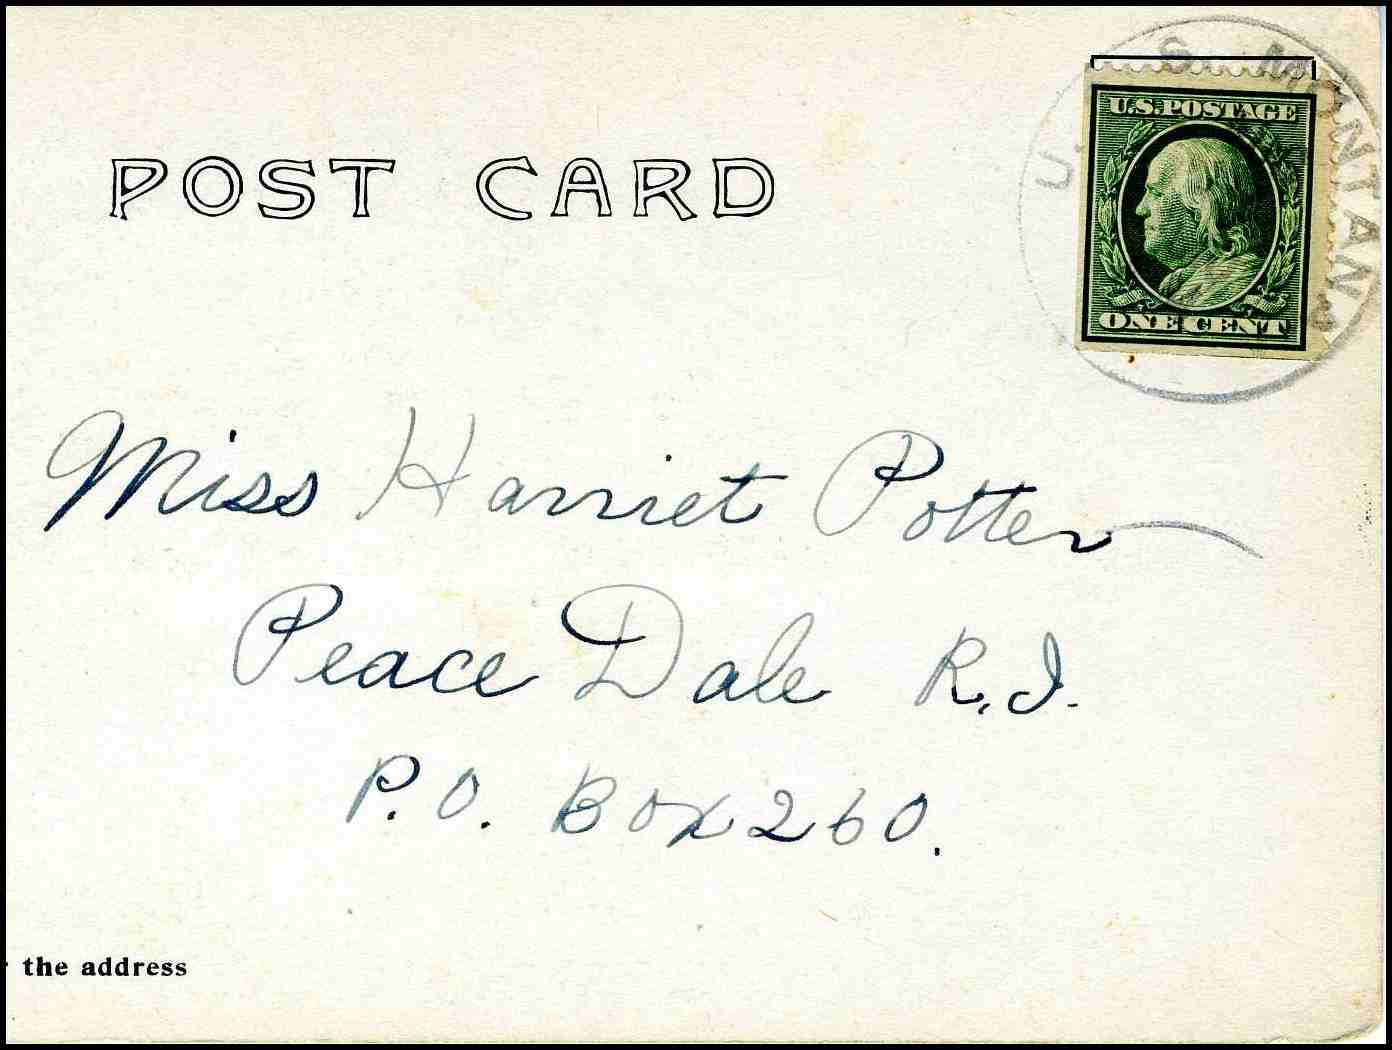 U. S. S. MONTANA
U.S. POSTAGE
ONE CENT
POST CARD
Miss Harriet Potter
Peace Dale R.I.
P.O. Box 260.
the address